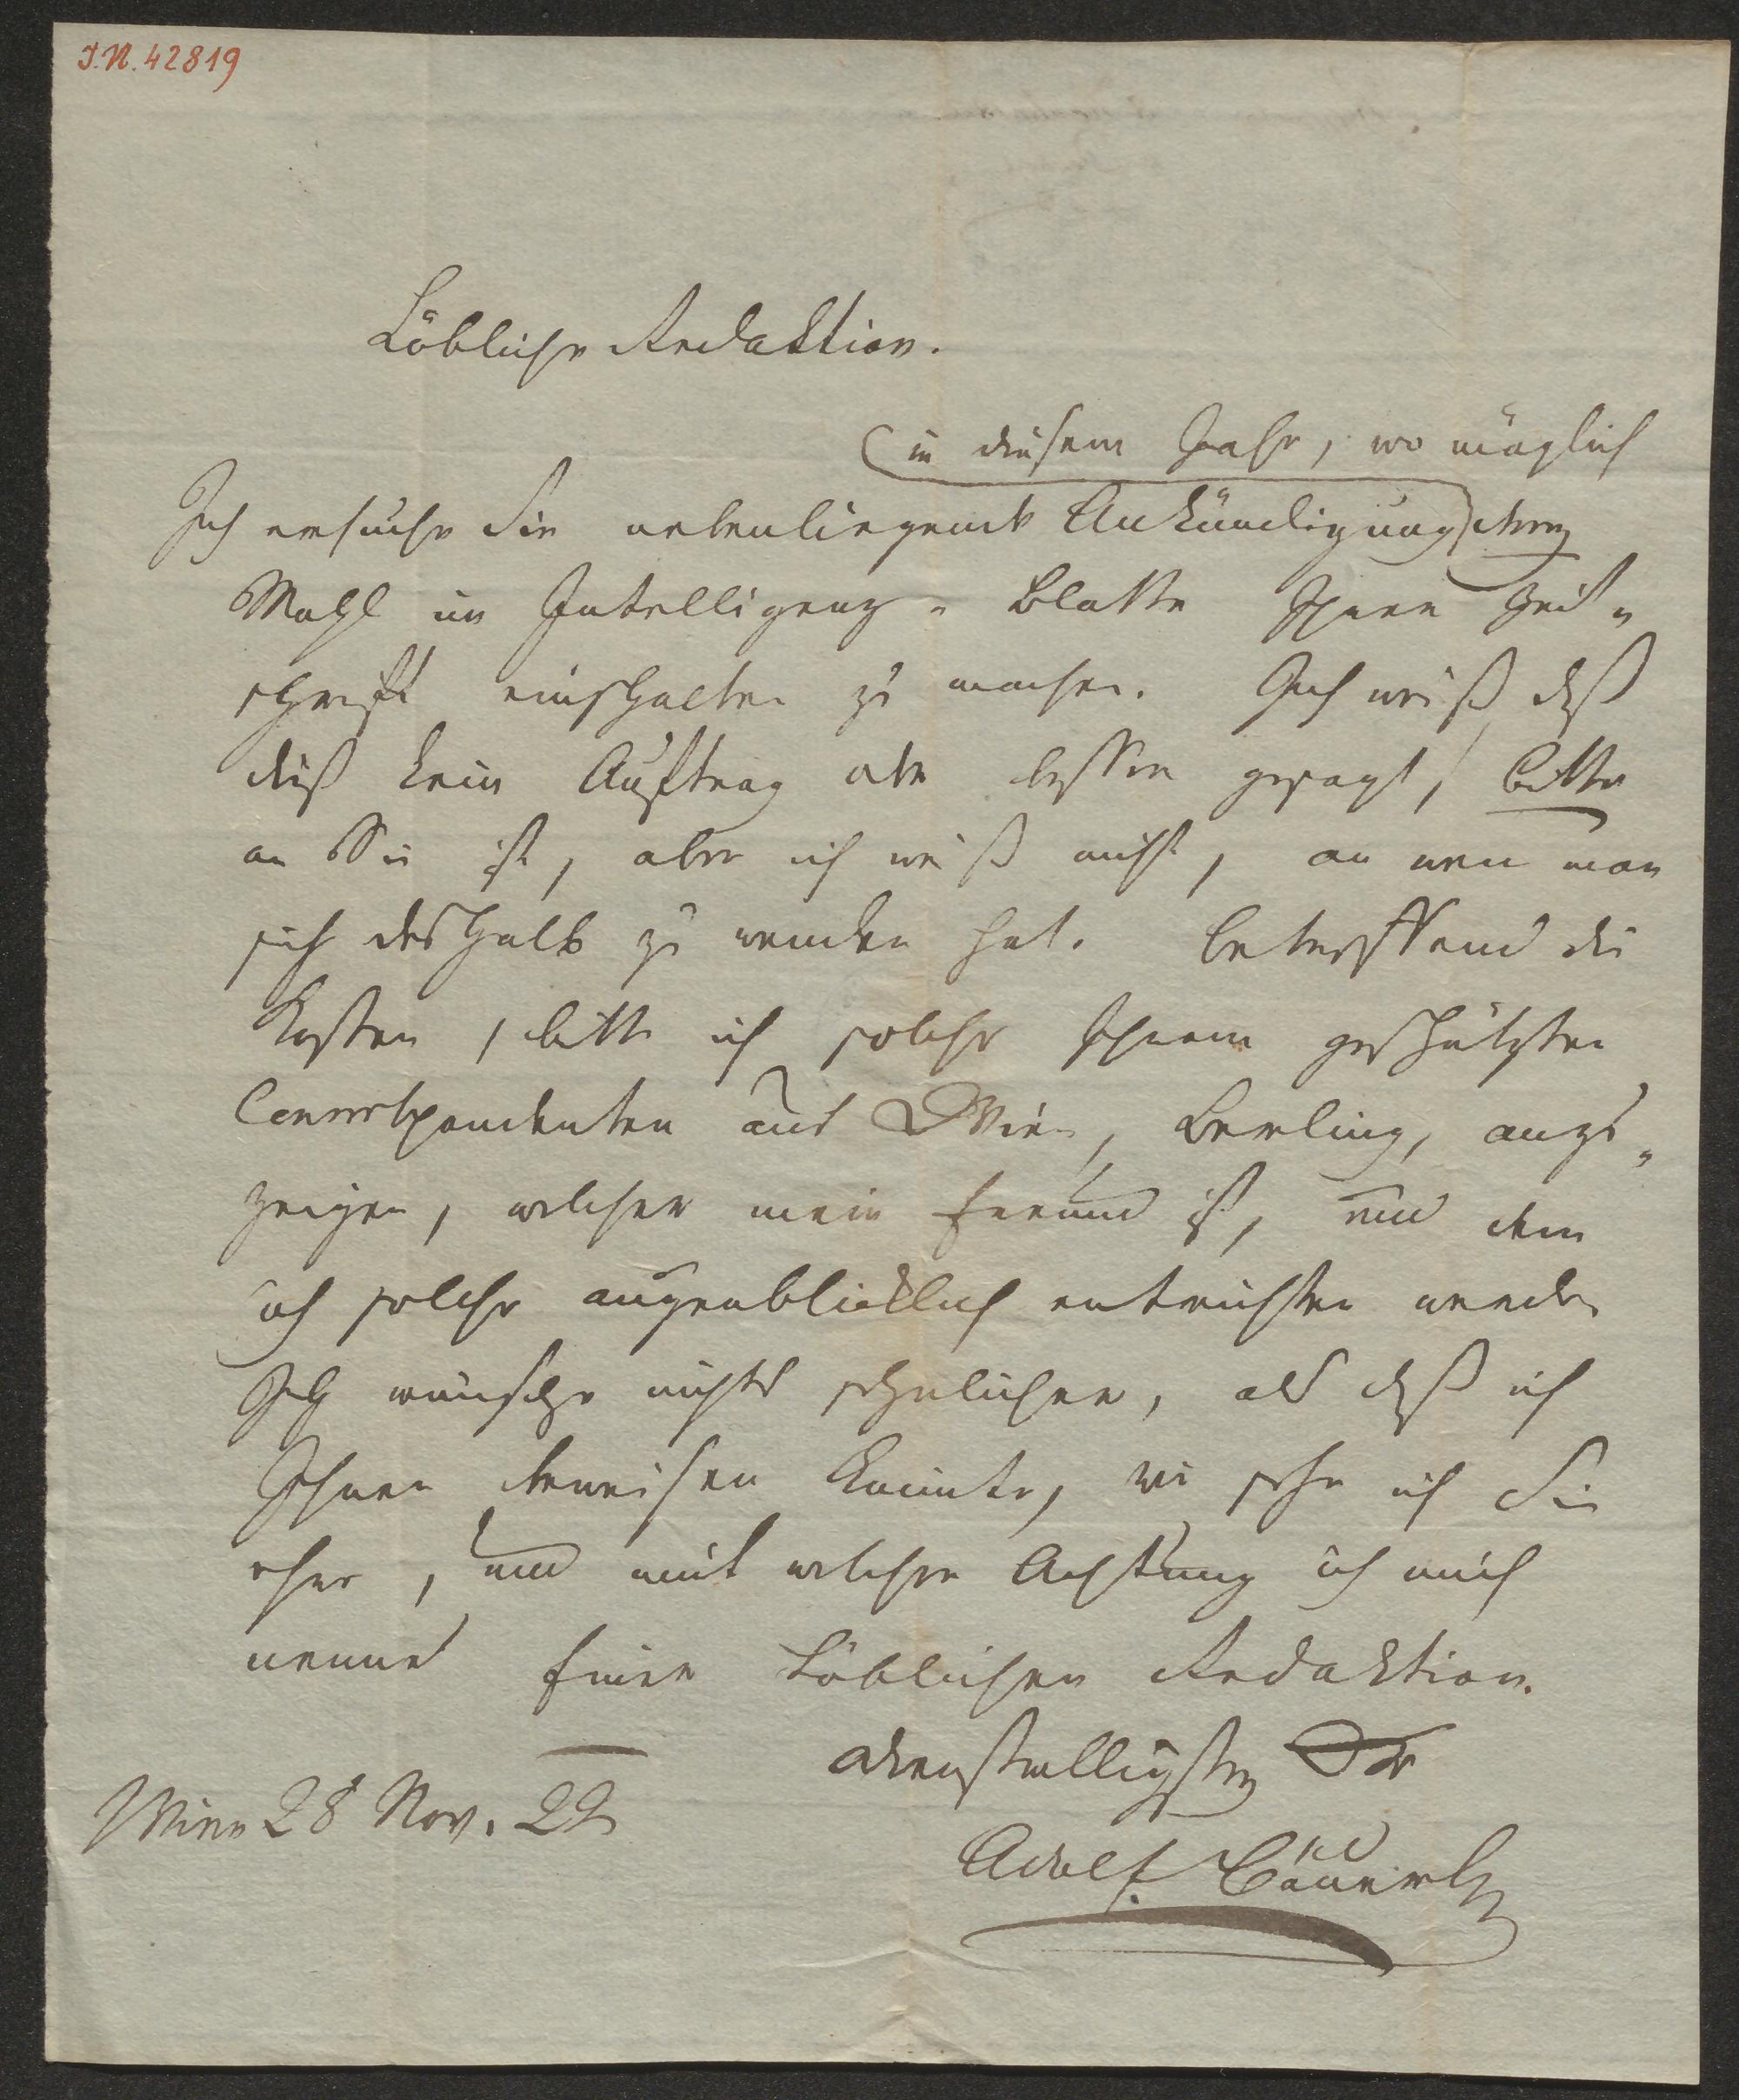 I.N. 42819
Löbliche Redaktion.
in diesem Jahr, wo möglich
Ich ersuche Sie nebenliegende Ankündigung drey
Mahl im Intelligenz-Blatte Ihrer Zeit-
schrift einschalten zu machen. Ich weiß daß
dieß kein Auftrag oder besser gesagt, Bitte
an Sie ist, aber ich weiß nicht, an wen man
sich deshalb zu wenden hat. Betreffend die
Kosten, bitte ich solche Ihrem geschätzten
Correspondenten aus Wien, Berling, anzu-
zeigen, welcher mein Freund ist, und dem
ich solche augenblicklich entrichten werde.
Ich wünsche nichts sehnlicher, als daß ich
Ihnen beweisen könnte, wie sehr ich Sie
ehre, und mit welcher Achtung ich mich
nenne Einer Löblichen Redaktion.
dienstwilligster
Wien 28 Nov. 22
Adolf Bäuerle